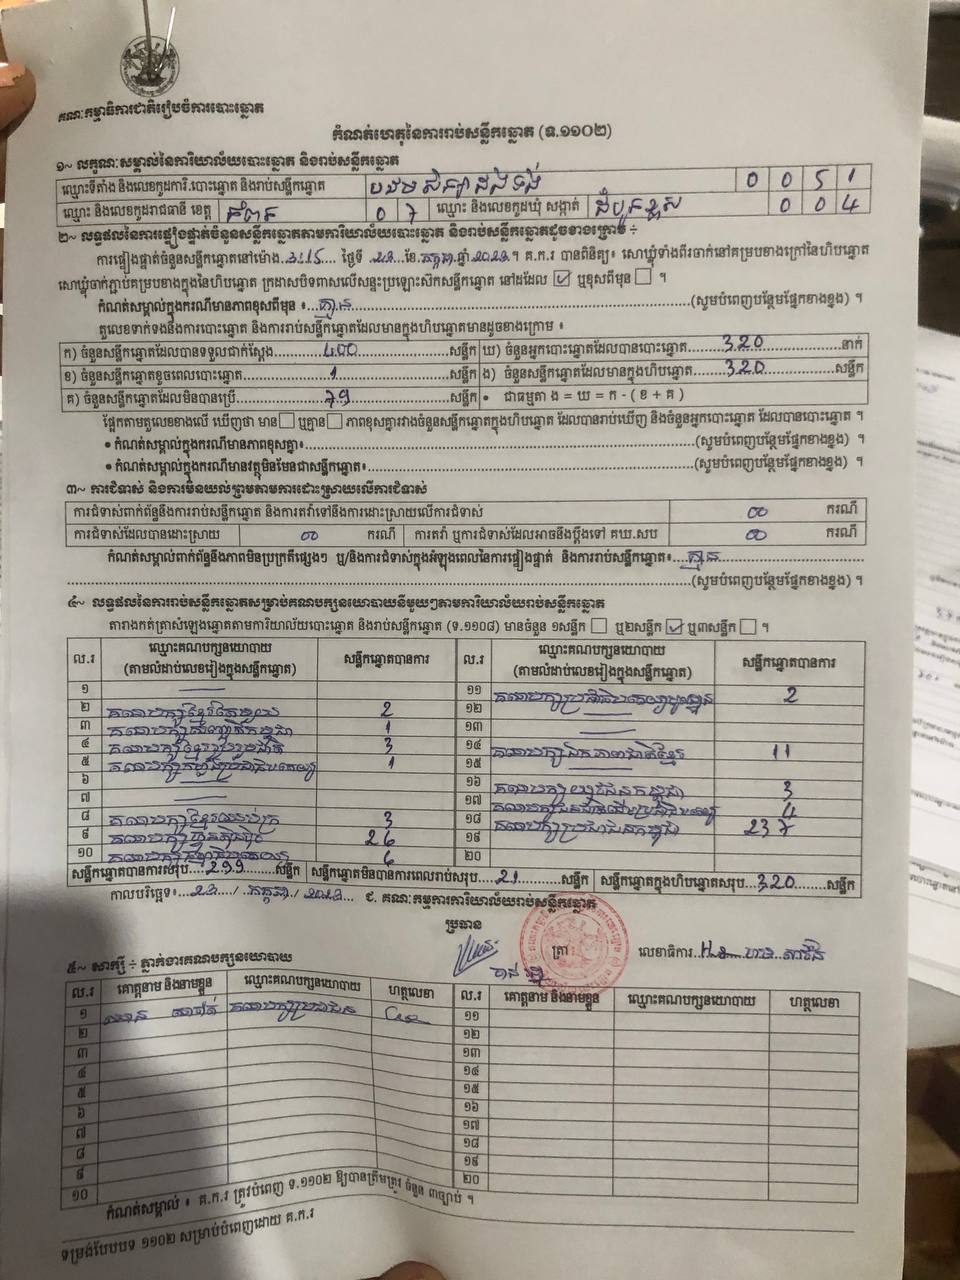 គណៈកម្មាធិការជាតិរៀបចំការបោះឆ្នោត
កំណត់ហេតុនៃការរាប់សន្លឹកឆ្នោត (ទ.១១០២)
១~ លក្ខណៈសម្គាល់នៃការិយាល័យបោះឆ្នោត និងរាប់សន្លឹកឆ្នោត
ឈ្មោះទីតាំង និងលេខកូដការិ.បោះឆ្នោត និងរាប់សន្លឹកឆ្នោត 0 0 5 1
ឈ្មោះ និងលេខកូដរាជធានី ខេត្ត កំពត 0 7 ឈ្មោះ និងលេខកូដឃុំ សង្កាត់ 0 0 4
២~ លទ្ធផលនៃការផ្ទៀងផ្ទាត់ចំនួនសន្លឹកឆ្នោតតាមការិយាល័យបោះឆ្នោត និងរាប់សន្លឹកឆ្នោតដូចខាងក្រោម ÷
ការផ្ទៀងផ្ទាត់ចំនួនសន្លឹកឆ្នោតនៅម៉ោង 3:15 ថ្ងៃទី ២៣ ខែ កក្កដា ឆ្នាំ ២០២៣។ គ.ក.រ បានពិនិត្យ៖ សោឃ្លុំទាំងពីរចាក់នៅគម្របខាងក្រៅនៃហិបឆ្នោត
សោឃ្លុំចាក់ភ្ជាប់គម្របខាងក្នុងនៃហិបឆ្នោត ក្រដាសបិទពាសលើសន្ទះប្រឡោះស៊កសន្លឹកឆ្នោត នៅដដែល ☑ ឬខុសពីមុន ☐ ។
កំណត់សម្គាល់ក្នុងករណីមានភាពខុសពីមុន ៖ គ្មាន (សូមបំពេញបន្ថែមផ្នែកខាងខ្នង) ។
តួលេខទាក់ទងនឹងការបោះឆ្នោត និងការរាប់សន្លឹកឆ្នោតដែលមានក្នុងហិបឆ្នោតមានដូចខាងក្រោម ៖
ក) ចំនួនសន្លឹកឆ្នោតដែលបានទទួលជាក់ស្តែង 400 សន្លឹក ឃ) ចំនួនអ្នកបោះឆ្នោតដែលបានបោះឆ្នោត 320 នាក់
ខ) ចំនួនសន្លឹកឆ្នោតខូចពេលបោះឆ្នោត 1 សន្លឹក ង) ចំនួនសន្លឹកឆ្នោតដែលមានក្នុងហិបឆ្នោត 320 សន្លឹក
គ) ចំនួនសន្លឹកឆ្នោតដែលមិនបានប្រើ 79 សន្លឹក • ជាធម្មតា ង = ឃ = ក - ( ខ + គ )
ផ្អែកតាមតួលេខខាងលើ ឃើញថា មាន ☐ ឬគ្មាន ☐ ភាពខុសគ្នារវាងចំនួនសន្លឹកឆ្នោតក្នុងហិបឆ្នោត ដែលបានរាប់ឃើញ និងចំនួនអ្នកបោះឆ្នោត ដែលបានបោះឆ្នោត ។
• កំណត់សម្គាល់ក្នុងករណីមានភាពខុសគ្នា៖ (សូមបំពេញបន្ថែមផ្នែកខាងខ្នង) ។
• កំណត់សម្គាល់ក្នុងករណីមានវត្ថុមិនមែនជាសន្លឹកឆ្នោត៖ (សូមបំពេញបន្ថែមផ្នែកខាងខ្នង) ។
៣~ ការជំទាស់ និងការមិនយល់ព្រមតាមការដោះស្រាយលើការជំទាស់
ការជំទាស់ពាក់ព័ន្ធនឹងការរាប់សន្លឹកឆ្នោត និងការតវ៉ាទៅនឹងការដោះស្រាយលើការជំទាស់ 00 ករណី
ការជំទាស់ដែលបានដោះស្រាយ 00 ករណី ការតវ៉ា ឬការជំទាស់ដែលអាចនឹងប្តឹងទៅ គឃ.សប 00 ករណី
កំណត់សម្គាល់ពាក់ព័ន្ធនឹងភាពមិនប្រក្រតីផ្សេងៗ ឬ/និងការជំទាស់ក្នុងអំឡុងពេលនៃការផ្ទៀងផ្ទាត់ និងការរាប់សន្លឹកឆ្នោត៖ គ្មាន
(សូមបំពេញបន្ថែមផ្នែកខាងខ្នង) ។
៤~ លទ្ធផលនៃការរាប់សន្លឹកឆ្នោតសម្រាប់គណបក្សនយោបាយនីមួយៗតាមការិយាល័យរាប់សន្លឹកឆ្នោត
តារាងកត់ត្រាសំឡេងឆ្នោតតាមការិយាល័យបោះឆ្នោត និងរាប់សន្លឹកឆ្នោត (ទ.១១០៨) មានចំនួន ១សន្លឹក ☐ ឬ២សន្លឹក ☑ ឬ៣សន្លឹក ☐ ។
ល.រ ឈ្មោះគណបក្សនយោបាយ (តាមលំដាប់លេខរៀងក្នុងសន្លឹកឆ្នោត) សន្លឹកឆ្នោតបានការ ល.រ ឈ្មោះគណបក្សនយោបាយ (តាមលំដាប់លេខរៀងក្នុងសន្លឹកឆ្នោត) សន្លឹកឆ្នោតបានការ
១ ១១ 2
២ គណបក្សខ្មែរតែមួយ 2 ១២
៣ គណបក្សសញ្ជាតិកម្ពុជា 1 ១៣
៤ គណបក្សខ្មែររួបរួមជាតិ 3 ១៤ គណបក្សឯកភាពជាតិខ្មែរ 11
៥ គណបក្សកម្លាំងប្រជាធិបតេយ្យ 1 ១៥
៦ ១៦ គណបក្សយុវជនកម្ពុជា 3
៧ ១៧ គណបក្សជនជាតិដើមប្រជាធិបតេយ្យ 4
៨ គណបក្សខ្មែរឈប់ក្រ 3 ១៨ គណបក្សប្រជាជនកម្ពុជា 237
៩ គណបក្សហ្វ៊ុនស៊ិនប៉ិច 26 ១៩
១០ 6 ២០
សន្លឹកឆ្នោតបានការសរុប 299 សន្លឹក សន្លឹកឆ្នោតមិនបានការពេលរាប់សរុប 21 សន្លឹក សន្លឹកឆ្នោតក្នុងហិបឆ្នោតសរុប 320 សន្លឹក
កាលបរិច្ឆេទ៖ ២៣ / កក្កដា / ២០២៣ ជ. គណៈកម្មការការិយាល័យរាប់សន្លឹកឆ្នោត
ប្រធាន
ត្រា លេខាធិការ
៥~ សាក្សី ÷ ភ្នាក់ងារគណបក្សនយោបាយ
ល.រ គោត្តនាម និងនាមខ្លួន ឈ្មោះគណបក្សនយោបាយ ហត្ថលេខា ល.រ គោត្តនាម និងនាមខ្លួន ឈ្មោះគណបក្សនយោបាយ ហត្ថលេខា
១ គណបក្សប្រជាជន ១១
២ ១២
៣ ១៣
៤ ១៤
៥ ១៥
៦ ១៦
៧ ១៧
៨ ១៨
៩ ១៩
១០ ២០
កំណត់សម្គាល់ ៖ គ.ក.រ ត្រូវបំពេញ ទ.១១០២ ឱ្យបានត្រឹមត្រូវ ចំនួន ៣ច្បាប់ ។
ទម្រង់បែបបទ ១១០២ សម្រាប់បំពេញដោយ គ.ក.រ